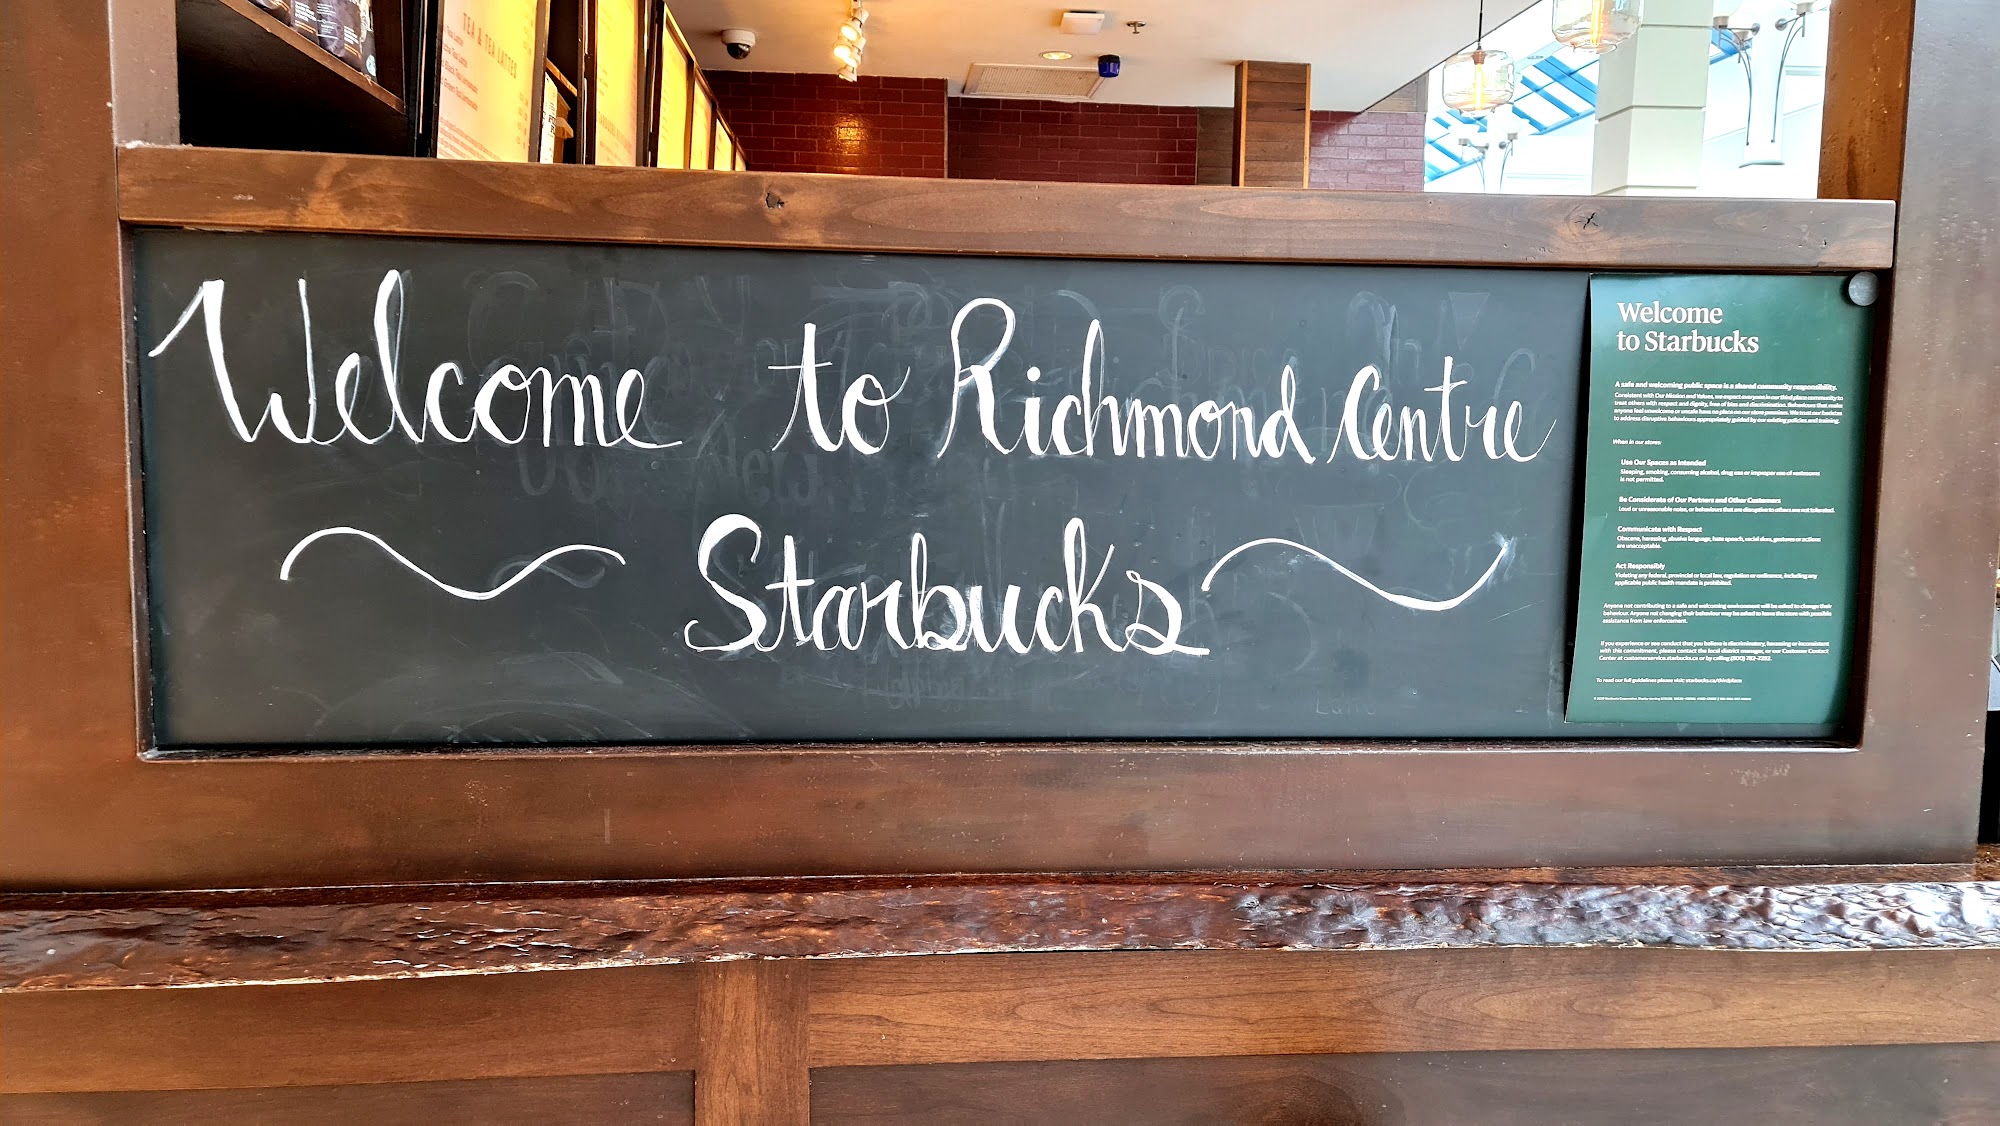 TEA & TEA LATTES
Welcome to Richmond Centre
Starbucks
Welcome
to Starbucks
A safe and welcoming public space is a shared community responsibility.
Consistent with Our Mission and Values, we expect everyone in our third place community to
treat others with respect and dignity, free of bias and discrimination. Behaviours that make
anyone feel unwelcome or unsafe have no place on our store premises. We trust our baristas
to address disruptive behaviours appropriately guided by our existing policies and training.
When in our stores:
Use Our Spaces as Intended
Sleeping, smoking, consuming alcohol, drug use or improper use of restrooms
is not permitted.
Be Considerate of Our Partners and Other Customers
Loud or unreasonable noise, or behaviours that are disruptive to others are not tolerated.
Communicate with Respect
Obscene, harassing, abusive language, hate speech, racial slurs, gestures or actions
are unacceptable.
Act Responsibly
Violating any federal, provincial or local law, regulation or ordinance, including any
applicable public health mandate is prohibited.
Anyone not contributing to a safe and welcoming environment will be asked to change their
behaviour. Anyone not changing their behaviour may be asked to leave the store with possible
assistance from law enforcement.
If you experience or see conduct that you believe is discriminatory, harassing or inconsistent
with this commitment, please contact the local district manager, or our Customer Contact
Center at customerservice.starbucks.ca or by calling (800) 782-7282.
To read our full guidelines please visit: starbucks.ca/thirdplace